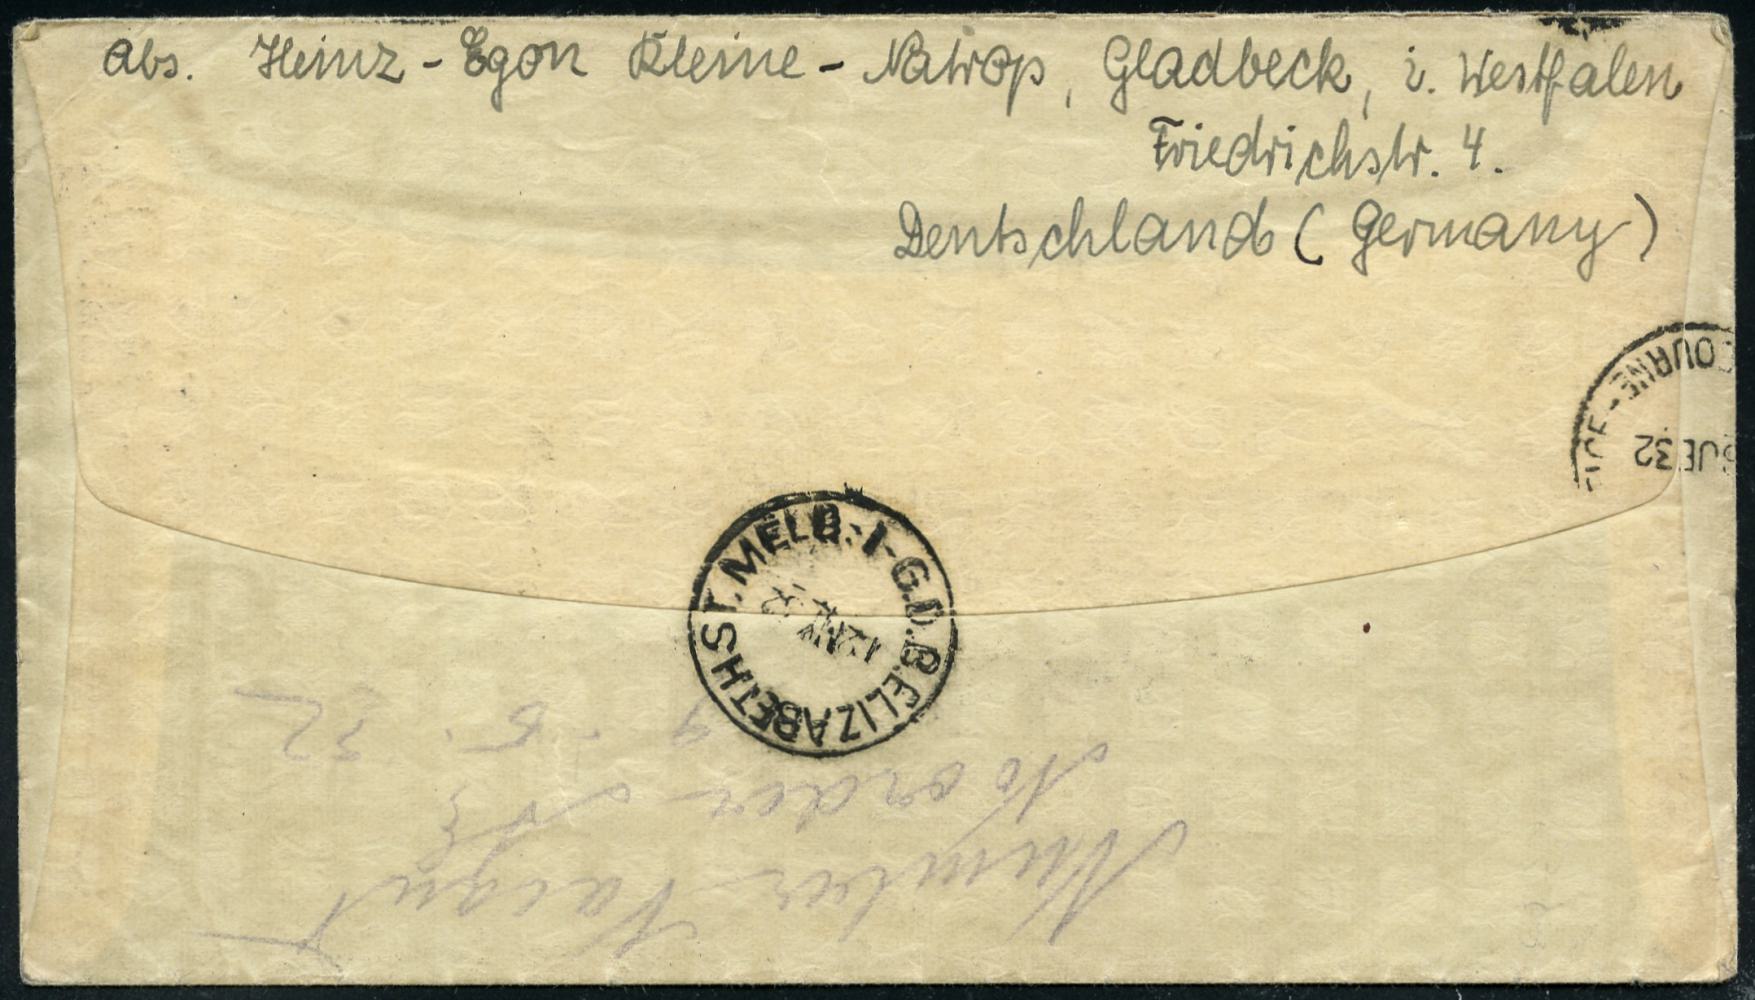 Abs. Heinz-Egon Kleine-Natrop, Gladbeck, i. Westfalen
Friedrichstr. 4.
Deutschland (Germany)
OURNE-
JE 32
ELIZABETH ST. MELB.-1-G.D.B.
Number Vacant
No order
9 - 5. 32